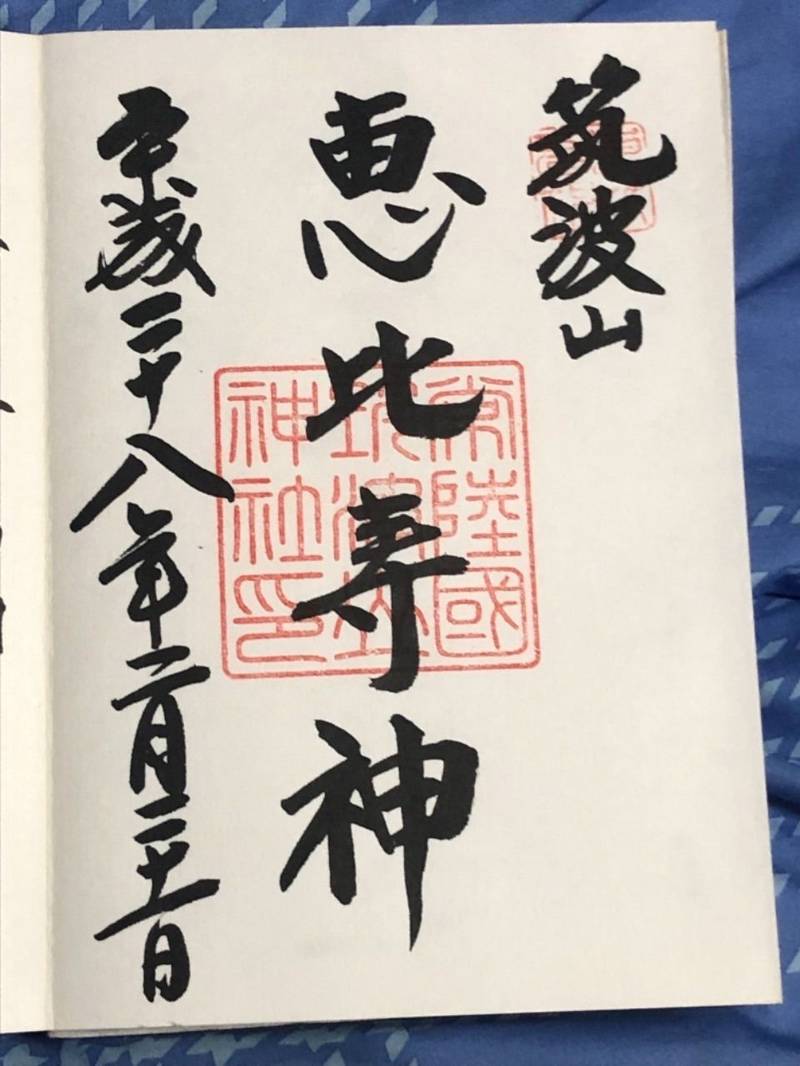 筑波山
恵比寿神
平成二十八年二月二十一日
常陸國
筑波山
神社印